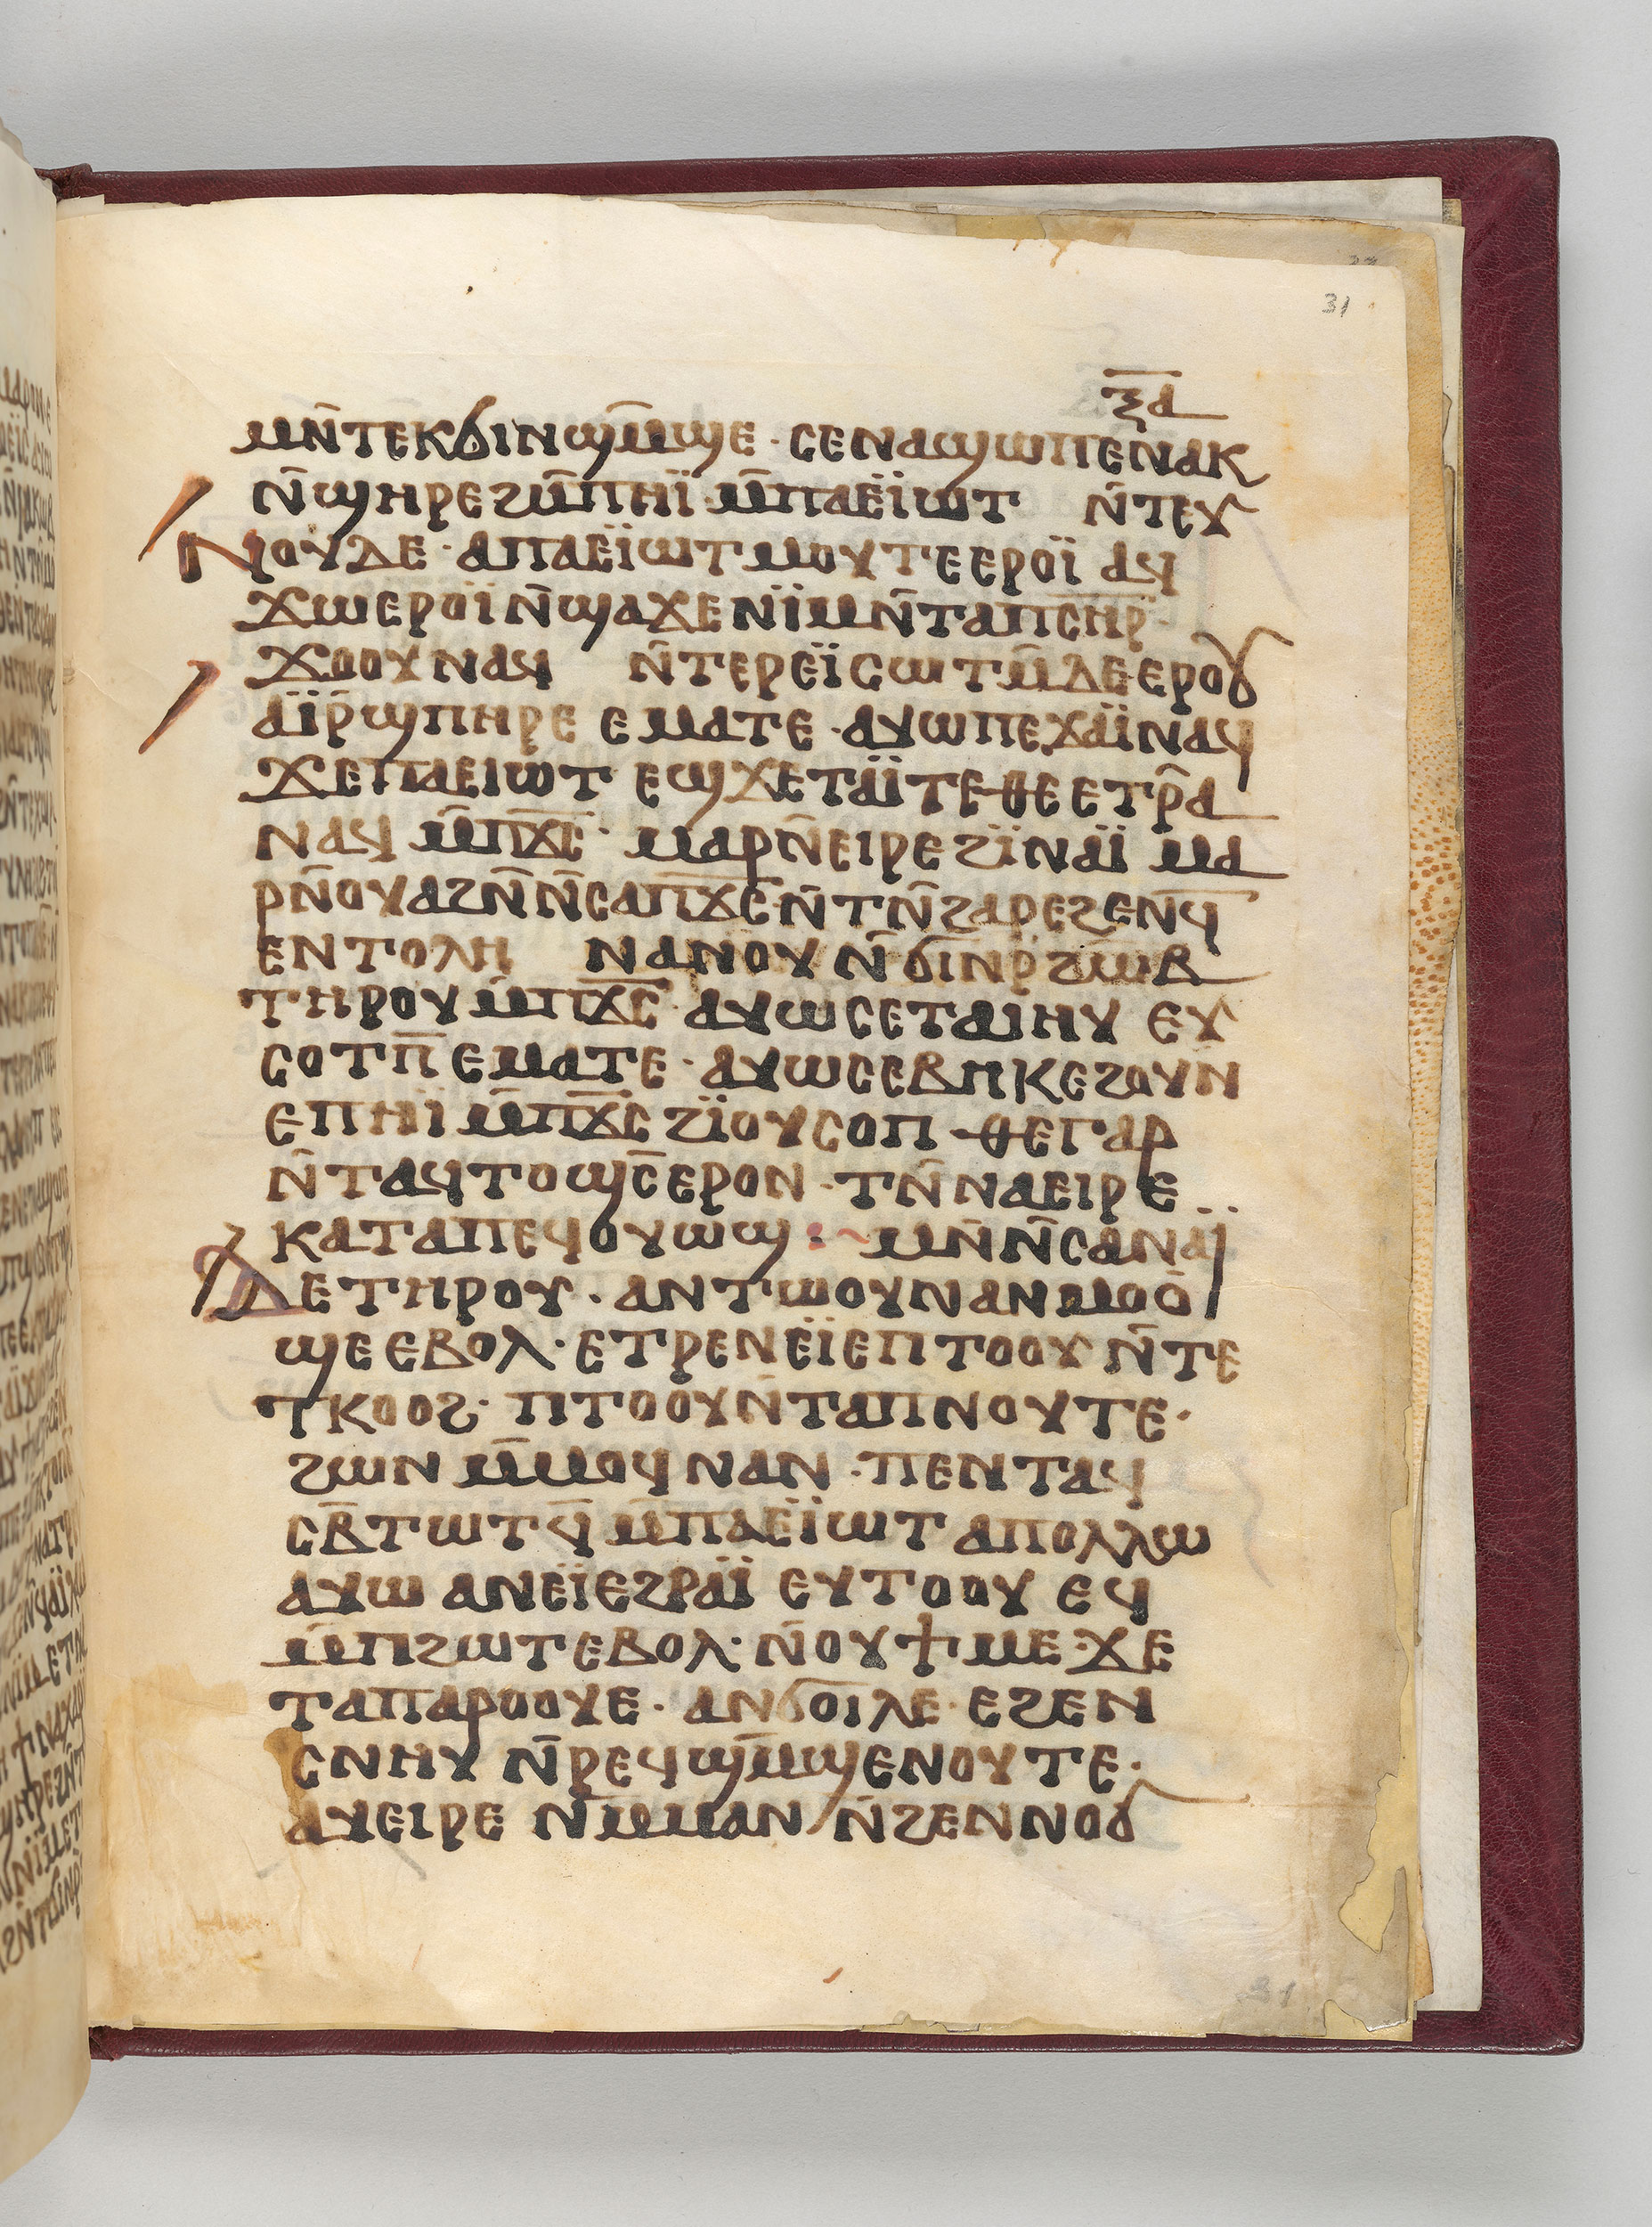 31
ⲝ̅ⲁ̅
ⲙⲛ̄ⲧⲉⲕϭⲓⲛϣⲙ̄ϣⲉ · ⲥⲉⲛⲁϣⲱⲡⲉⲛⲁⲕ
ⲛ̄ϣⲏⲣⲉϩⲙ̄ⲡⲏⲓ̈ · ⲙ̄ⲡⲁⲉⲓ̈ⲱⲧ ⲛ̄ⲧⲉⲩ
ⲛⲟⲩⲇⲉ · ⲁⲡⲁⲉⲓ̈ⲱⲧ ⲙⲟⲩⲧⲉⲉⲣⲟⲓ̈ ⲁϥ
ϫⲱⲉⲣⲟⲓ̈ ⲛ̄ϣⲁϫⲉ ⲛⲓ̈ⲙ ⲛ̄ⲧⲁⲡⲥ̅ⲏ̅ⲣ̅ ·
ϫⲟⲟⲩ ⲛⲁϥ ⲛ̄ⲧⲉⲣⲉⲓ̈ⲥⲱⲧⲙ̄ⲇⲉⲉⲣⲟⲩ
ⲁⲓ̈ⲣ̄ϣⲡⲏⲣⲉ ⲉⲙⲁⲧⲉ · ⲁⲩⲱⲡⲉϫⲁⲓ̈ ⲛⲁϥ
ϫⲉⲡⲁⲉⲓⲱⲧ ⲉϣϫⲉⲧⲁⲓ̈ⲧⲉⲑⲉ ⲉⲧⲣ̄ⲁ
ⲛⲁϥ ⲙ̄ⲡϫ̅ⲥ̅ · ⲙⲁⲣⲛ̄ⲉⲓⲣⲉϩⲓ̈ⲛⲁⲓ̈ ⲙⲁ
ⲣⲛ̄ⲟⲩⲁϩⲛ̄ ⲛ̄ⲥⲁⲡϫ̅ⲥ̅ ⲛ̄ⲧⲛ̄ϩⲁⲣⲉϩⲉⲛϥ̄
ⲉⲛⲧⲟⲗⲏ ⲛⲁⲛⲟⲩ ⲛ̄ϭⲓⲛⲣ̄ϩⲱⲃ
ⲧⲏⲣⲟⲩ ⲙ̄ⲡϫ̅ⲥ̅ · ⲁⲩⲱⲥⲉⲧⲁⲓⲏⲩ ⲉⲩ
ⲥⲟⲧⲡ̄ ⲉⲙⲁⲧⲉ · ⲁⲩⲱⲥⲉⲃⲏⲕⲉϩⲟⲩⲛ
ⲉⲡⲏⲓ̈ ⲙ̄ⲡϫ̅ⲥ̅ ϩⲓ̈ⲟⲩⲥⲟⲡ ⲑⲉⲅⲁⲣ
ⲛ̄ⲧⲁϥⲧⲟϣⲥ̄ⲉⲣⲟⲛ · ⲧⲛ̄ⲛⲁⲉⲓⲣⲉ
ⲕⲁⲧⲁⲡⲉϥⲟⲩⲱϣ : ~ ⲙⲛ̄ⲛ̄ⲥⲁⲛⲁⲓ̈
ⲇⲉⲧⲏⲣⲟⲩ · ⲁⲛⲧⲱⲟⲩⲛ ⲁⲛⲙⲟⲟ
ϣⲉⲉⲃⲟⲗ · ⲉⲧⲣⲉⲛⲉⲓ̈ⲉⲡⲧⲟⲟⲩ ⲛ̄ⲧⲉ
ⲧⲕⲟⲟϩ · ⲡⲧⲟⲟⲩ ⲛ̄ⲧⲁⲡⲛⲟⲩⲧⲉ ·
ϩⲱⲛ ⲙ̄ⲙⲟϥ ⲛⲁⲛ · ⲡⲉⲛⲧⲁϥ
ⲥⲃ̄ⲧⲱⲧϥ̄ ⲙ̄ⲡⲁⲉⲓ̈ⲱⲧ ⲁⲡⲟⲗⲗⲱ
ⲁⲩⲱ ⲁⲛⲉⲓ̈ⲉϩⲣⲁⲓ̈ ⲉⲩⲧⲟⲟⲩ ⲉϥ
ⲙ̄ⲡϩⲱⲧ ⲉⲃⲟⲗ · ⲛ̄ⲟⲩϯⲙⲉ · ϫⲉ
ⲧⲁⲡⲁⲣⲟⲟⲩⲉ · ⲁⲛϭⲟⲓⲗⲉ · ⲉϩⲉⲛ
ⲥⲛⲏⲩ ⲛ̄ⲣⲉϥϣⲙ̄ϣⲉⲛⲟⲩⲧⲉ ·
ⲁⲩⲉⲓⲣⲉ ⲛⲙ̄ⲙⲁⲛ ⲛ̄ϩⲉⲛⲛⲟϭ
31